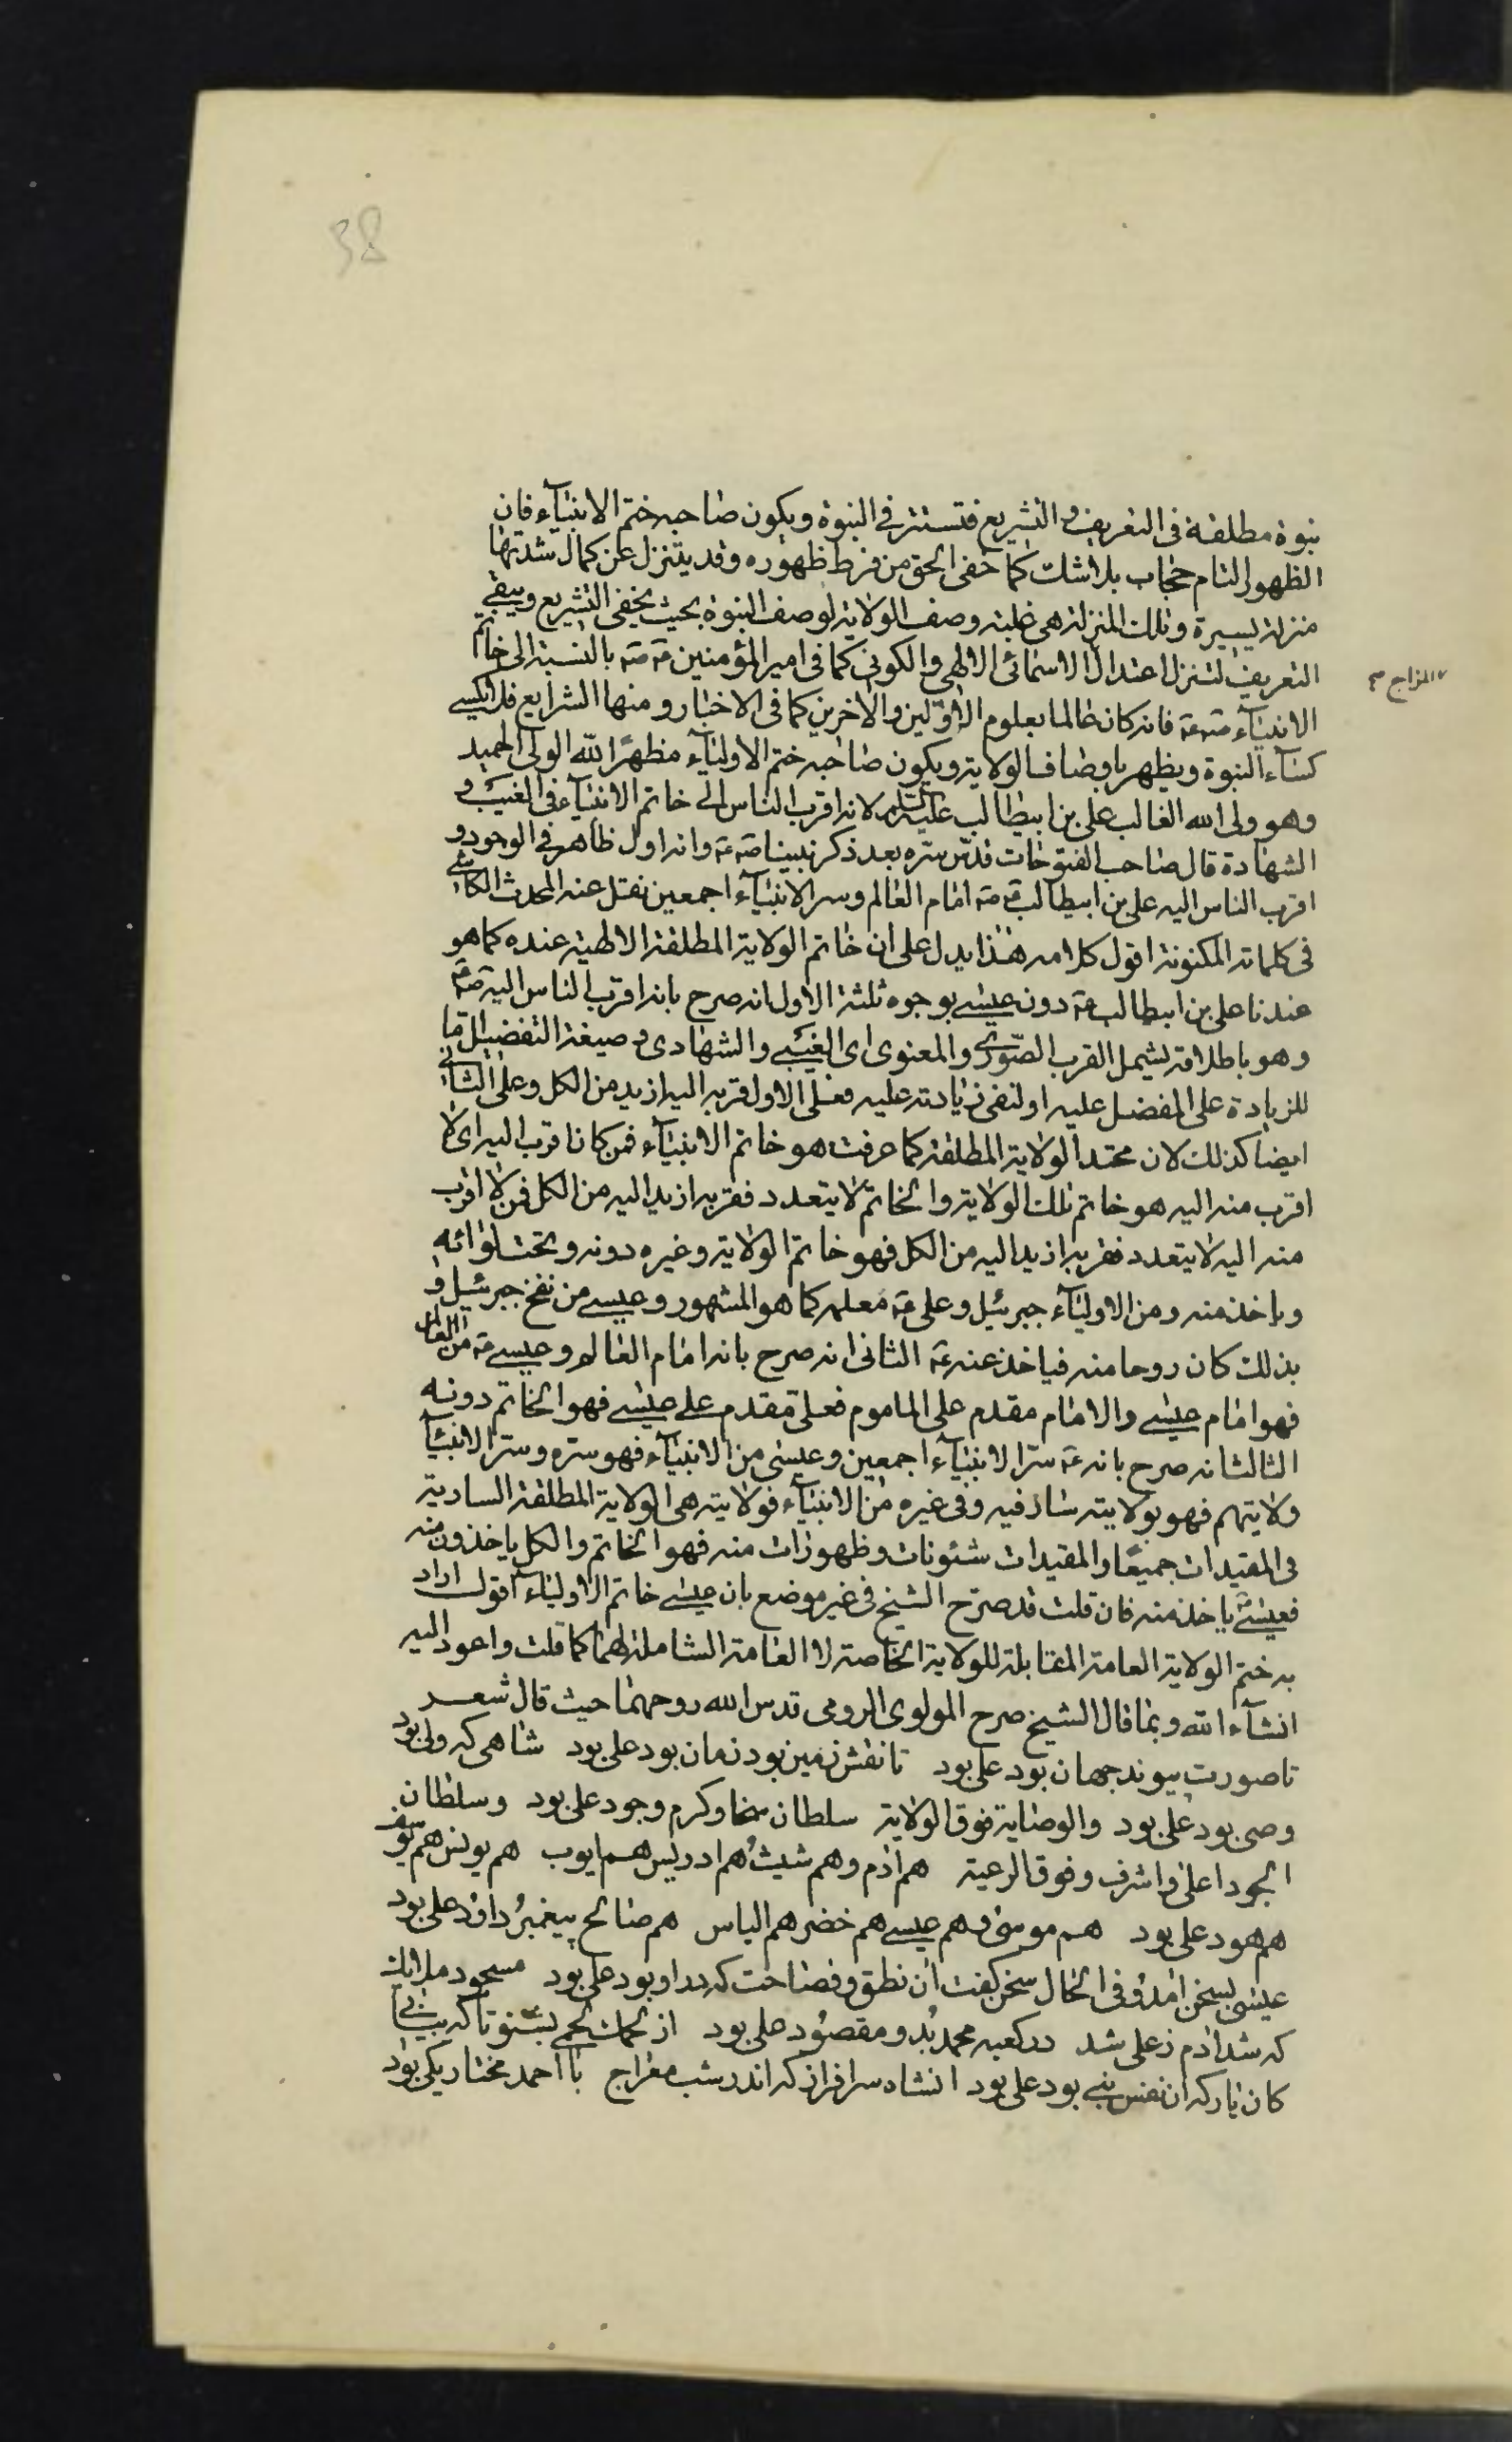 38
نبوة مطلقة فى التعريف و التشريع فتستتر فى النبوة ويكون صاحبه ختم الانبيآء فان
الظهور التام حجاب بلا شك كما خفى الحق من فرط ظهوره وقد يتنزل عن كمال شدتها
منزلة يسيرة وتلك المنزلة هى غلبة وصف الولاية لوصف النبوة بحيث يخفى التشريع ويبقى
التعريف لتنزل اعتدال الاسمائى الالهى والكونى كما فى امير المؤمنين بالنسبة الى خاتم
المزاج
الانبيآء فانه كان عالما بعلوم الاوّلين والاخرين كما فى الاخبار ومنها الشرايع فلا يكسى
كسآء النبوة ويظهر باوصاف الولاية ويكون صاحبه ختم الاوليآء مظهرًا لله الولى الحميد
وهو ولى الله الغالب على بن ابيطالب عليه السلم لانه اقرب الناس الى خاتم الانبيآء فى الغيب و
الشهادة قال صاحب الفتوحات قدّس سرّه بعد ذكر نبينا وانه اول ظاهر فى الوجود و
اقرب الناس اليه على بن ابيطالب امام العالم وسر الانبيآء اجمعين نقل عنه المحدث الكاشى
فى كلماته المكنونة اقول كلامه هذا يدل على ان خاتم الولاية المطلقة الالهية عنده كما هو
عندنا على بن ابيطالب دون عيسى بوجوه ثلثة الاول انه صرح بانه اقرب الناس اليه
وهو باطلاقه يشمل القرب الصّورى والمعنوى اى الغيبى والشهادى و صيغة التفضيل امّا
للزيادة على المفضل عليه او لنفى زيادته عليه فعلى الاول قربه اليه ازيد من الكل وعلى الثانى
ايضا كذلك لان محتد الولاية المطلقة كما عرفت هو خاتم الانبيآء فمن كان اقرب اليه اى لا
اقرب منه اليه هو خاتم تلك الولاية والخاتم لا يتعدد فقربه ازيد اليه من الكل فمن لا اقرب
منه اليه لا يتعدد فقربه ازيد اليه من الكل فهو خاتم الولاية وغيره دونه وتحت لوائه
وياخذ منه ومن الاوليآء جبرئيل وعلى معلمه كما هو المشهور وعيسى من نفخ جبرئيل و
بذلك كان روحا منه فياخذ عنه الثانى انه صرح بانه امام العالم وعيسى من العالم
فهو امام عيسى والامام مقدم على الماموم فعلى مقدم على عيسى فهو الخاتم دونه
الثالث انه صرح بانه سرّ الانبيآء اجمعين وعيسى من الانبيآء فهو سرّه وسرّ الانبيآء
ولايتهم فهو بولايته سار فيه وفى غيره من الانبيآء فولايته هى الولاية المطلقة السارية
فى المقيدات جميعًا والمقيدات شئونات وظهورات منه فهو الخاتم والكل ياخذون منه
فعيسى ياخذ منه فان قلت قد صرّح الشيخ فى غير موضع بان عيسى خاتم الاوليآء اقول اراد
به ختم الولاية العامة المقابلة للولاية الخاصة لا العامة الشاملة لهما كما قلت واعود اليه
انشآء الله وبما قال الشيخ صرح المولوى الرومى قدس الله روحهما حيث قال شعر
تا صورت پيوند جهان بود على بود تا نقش زمين بود زمان بود على بود شاهى كه ولى بود
وصى بود على بود والوصاية فوق الولاية سلطان سخا وكرم وجود على بود وسلطان
الجود اعلى واشرف وفوق الرعية هم ادم وهم شيث و هم ادريس هم ايوب هم يونس هم يوسف
هم هود على بود هم موسى و هم عيسى هم خضر هم الياس هم صالح پيغمبر و داود على بود
عيسى بسخن امد و فى الحال سخن كفت ان نطق و فصاحت كه در او بود على بود مسجود ملايك
كه شد ادم ز على شد در كعبه محمد بُد و مقصود على بود از لحمك لحمى بشنو تا كه بيابى
كان يار كه ان نفس نبى بود على بود انشاه سرافراز كه اندر شب معراج با احمد مختار يكى بود